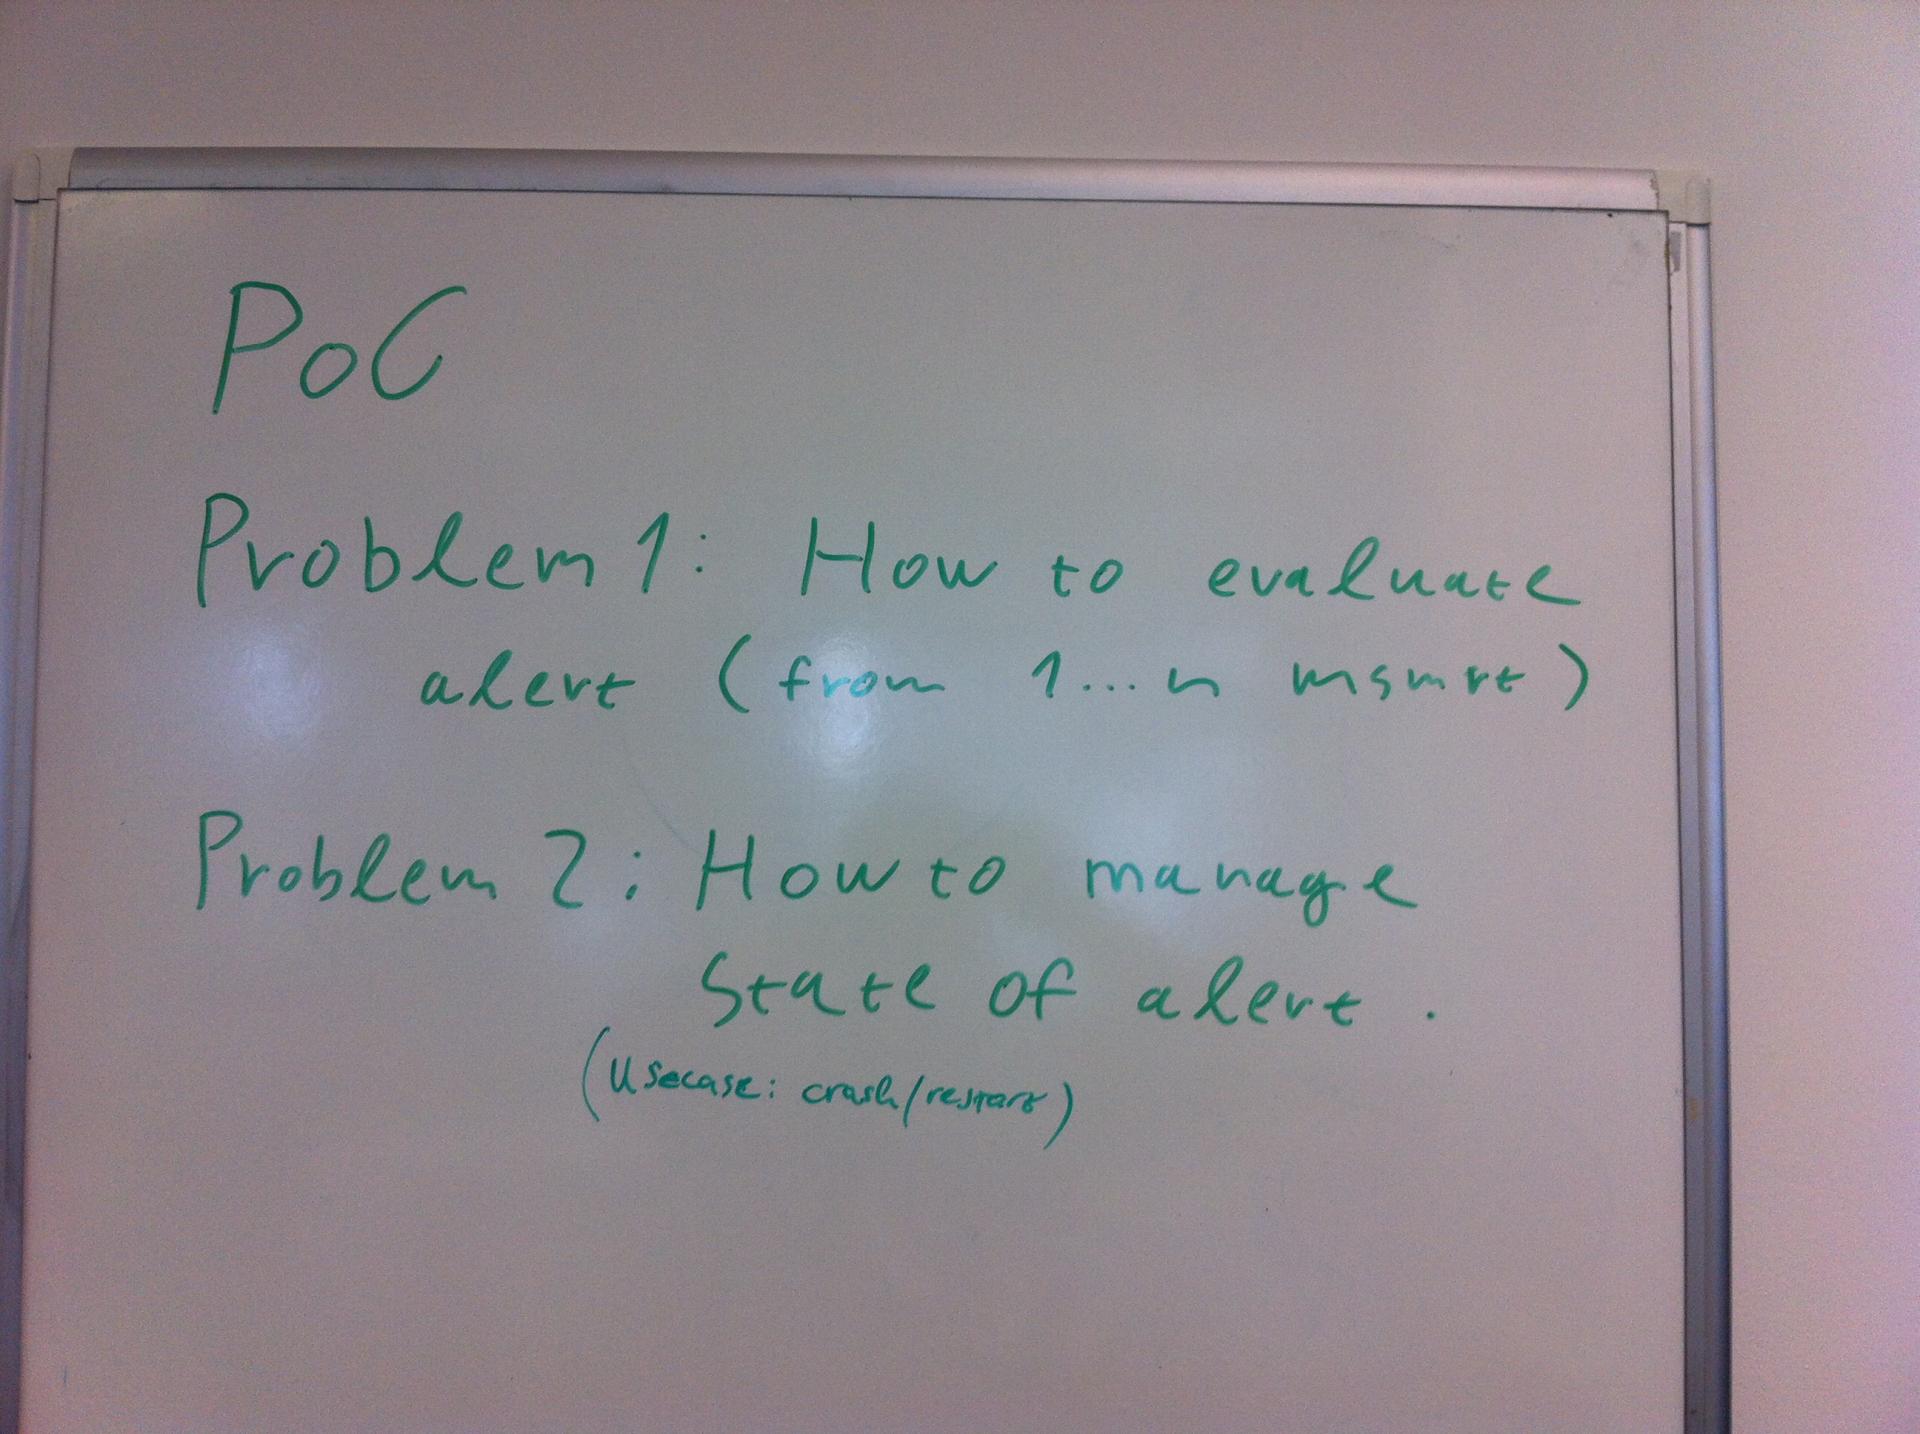 PoC
Problem 1: How to evaluate
alert (from 1...n msmrt)
Problem 2: How to manage
state of alert.
(Usecase: crash/restart)